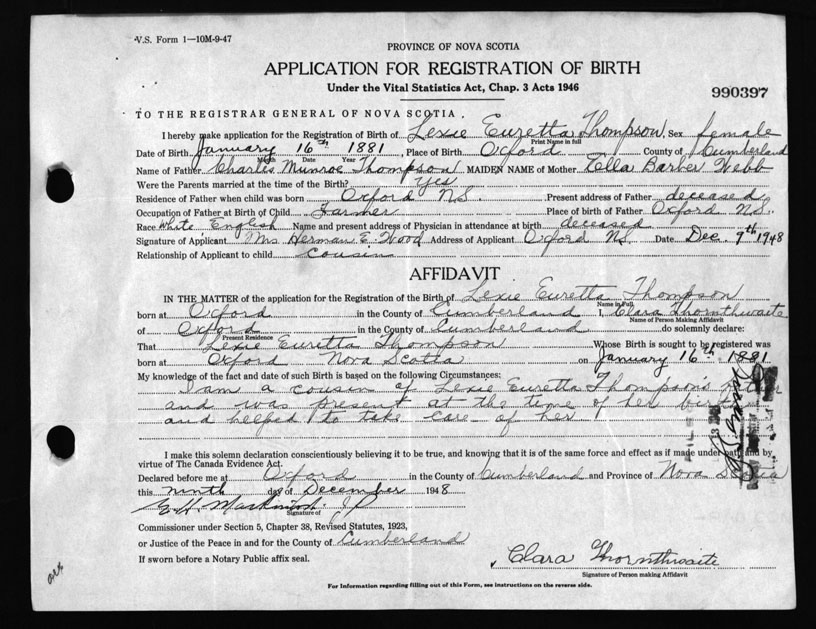 V.S. Form 1—10M-9-47
PROVINCE OF NOVA SCOTIA
APPLICATION FOR REGISTRATION OF BIRTH
Under the Vital Statistics Act, Chap. 3 Acts 1946
990397
TO THE REGISTRAR GENERAL OF NOVA SCOTIA,
I hereby make application for the Registration of Birth of Lexie Euretta Thompson, Sex female
Print Name in full
Date of Birth January 16th 1881, Place of Birth Oxford County of Cumberland
Month Date Year
Name of Father Charles Munroe Thompson MAIDEN NAME of Mother Ella Barber Webb
Were the Parents married at the time of Birth? Yes
Residence of Father when child was born Oxford N.S. Present address of Father deceased
Occupation of Father at Birth of Child Farmer Place of birth of Father Oxford N.S.
Race White, English Name and present address of Physician in attendance at birth deceased
Signature of Applicant Mrs Herman E. Wood Address of Applicant Oxford N.S. Date Dec. 9th 1948
Relationship of Applicant to child cousin
AFFIDAVIT
IN THE MATTER of the application for the Registration of the Birth of Lexie Euretta Thompson
Name in Full
born at Oxford in the County of Cumberland I, Clara Thornthwaite
Name of Person Making Affidavit
of Oxford in the County of Cumberland do solemnly declare:
Present Residence
That Lexie Euretta Thompson Whose Birth is sought to be registered was
born at Oxford Nova Scotia on January 16th 1881
My knowledge of the fact and date of such Birth is based on the following Circumstances:
I am a cousin of Lexie Euretta Thompson's
and was present at the time of her birth
and helped to take care of her
I make this solemn declaration conscientiously believing it to be true, and knowing that it is of the same force and effect as if made under oath and by
virtue of The Canada Evidence Act.
Declared before me at Oxford in the County of Cumberland and Province of Nova Scotia
this ninth day of December 1948
Signature of
Commissioner under Section 5, Chapter 38, Revised Statutes, 1923,
or Justice of the Peace in and for the County of Cumberland
If sworn before a Notary Public affix seal.
Clara Thornthwaite
Signature of Person making Affidavit
For Information regarding filling out of this Form, see instructions on the reverse side.